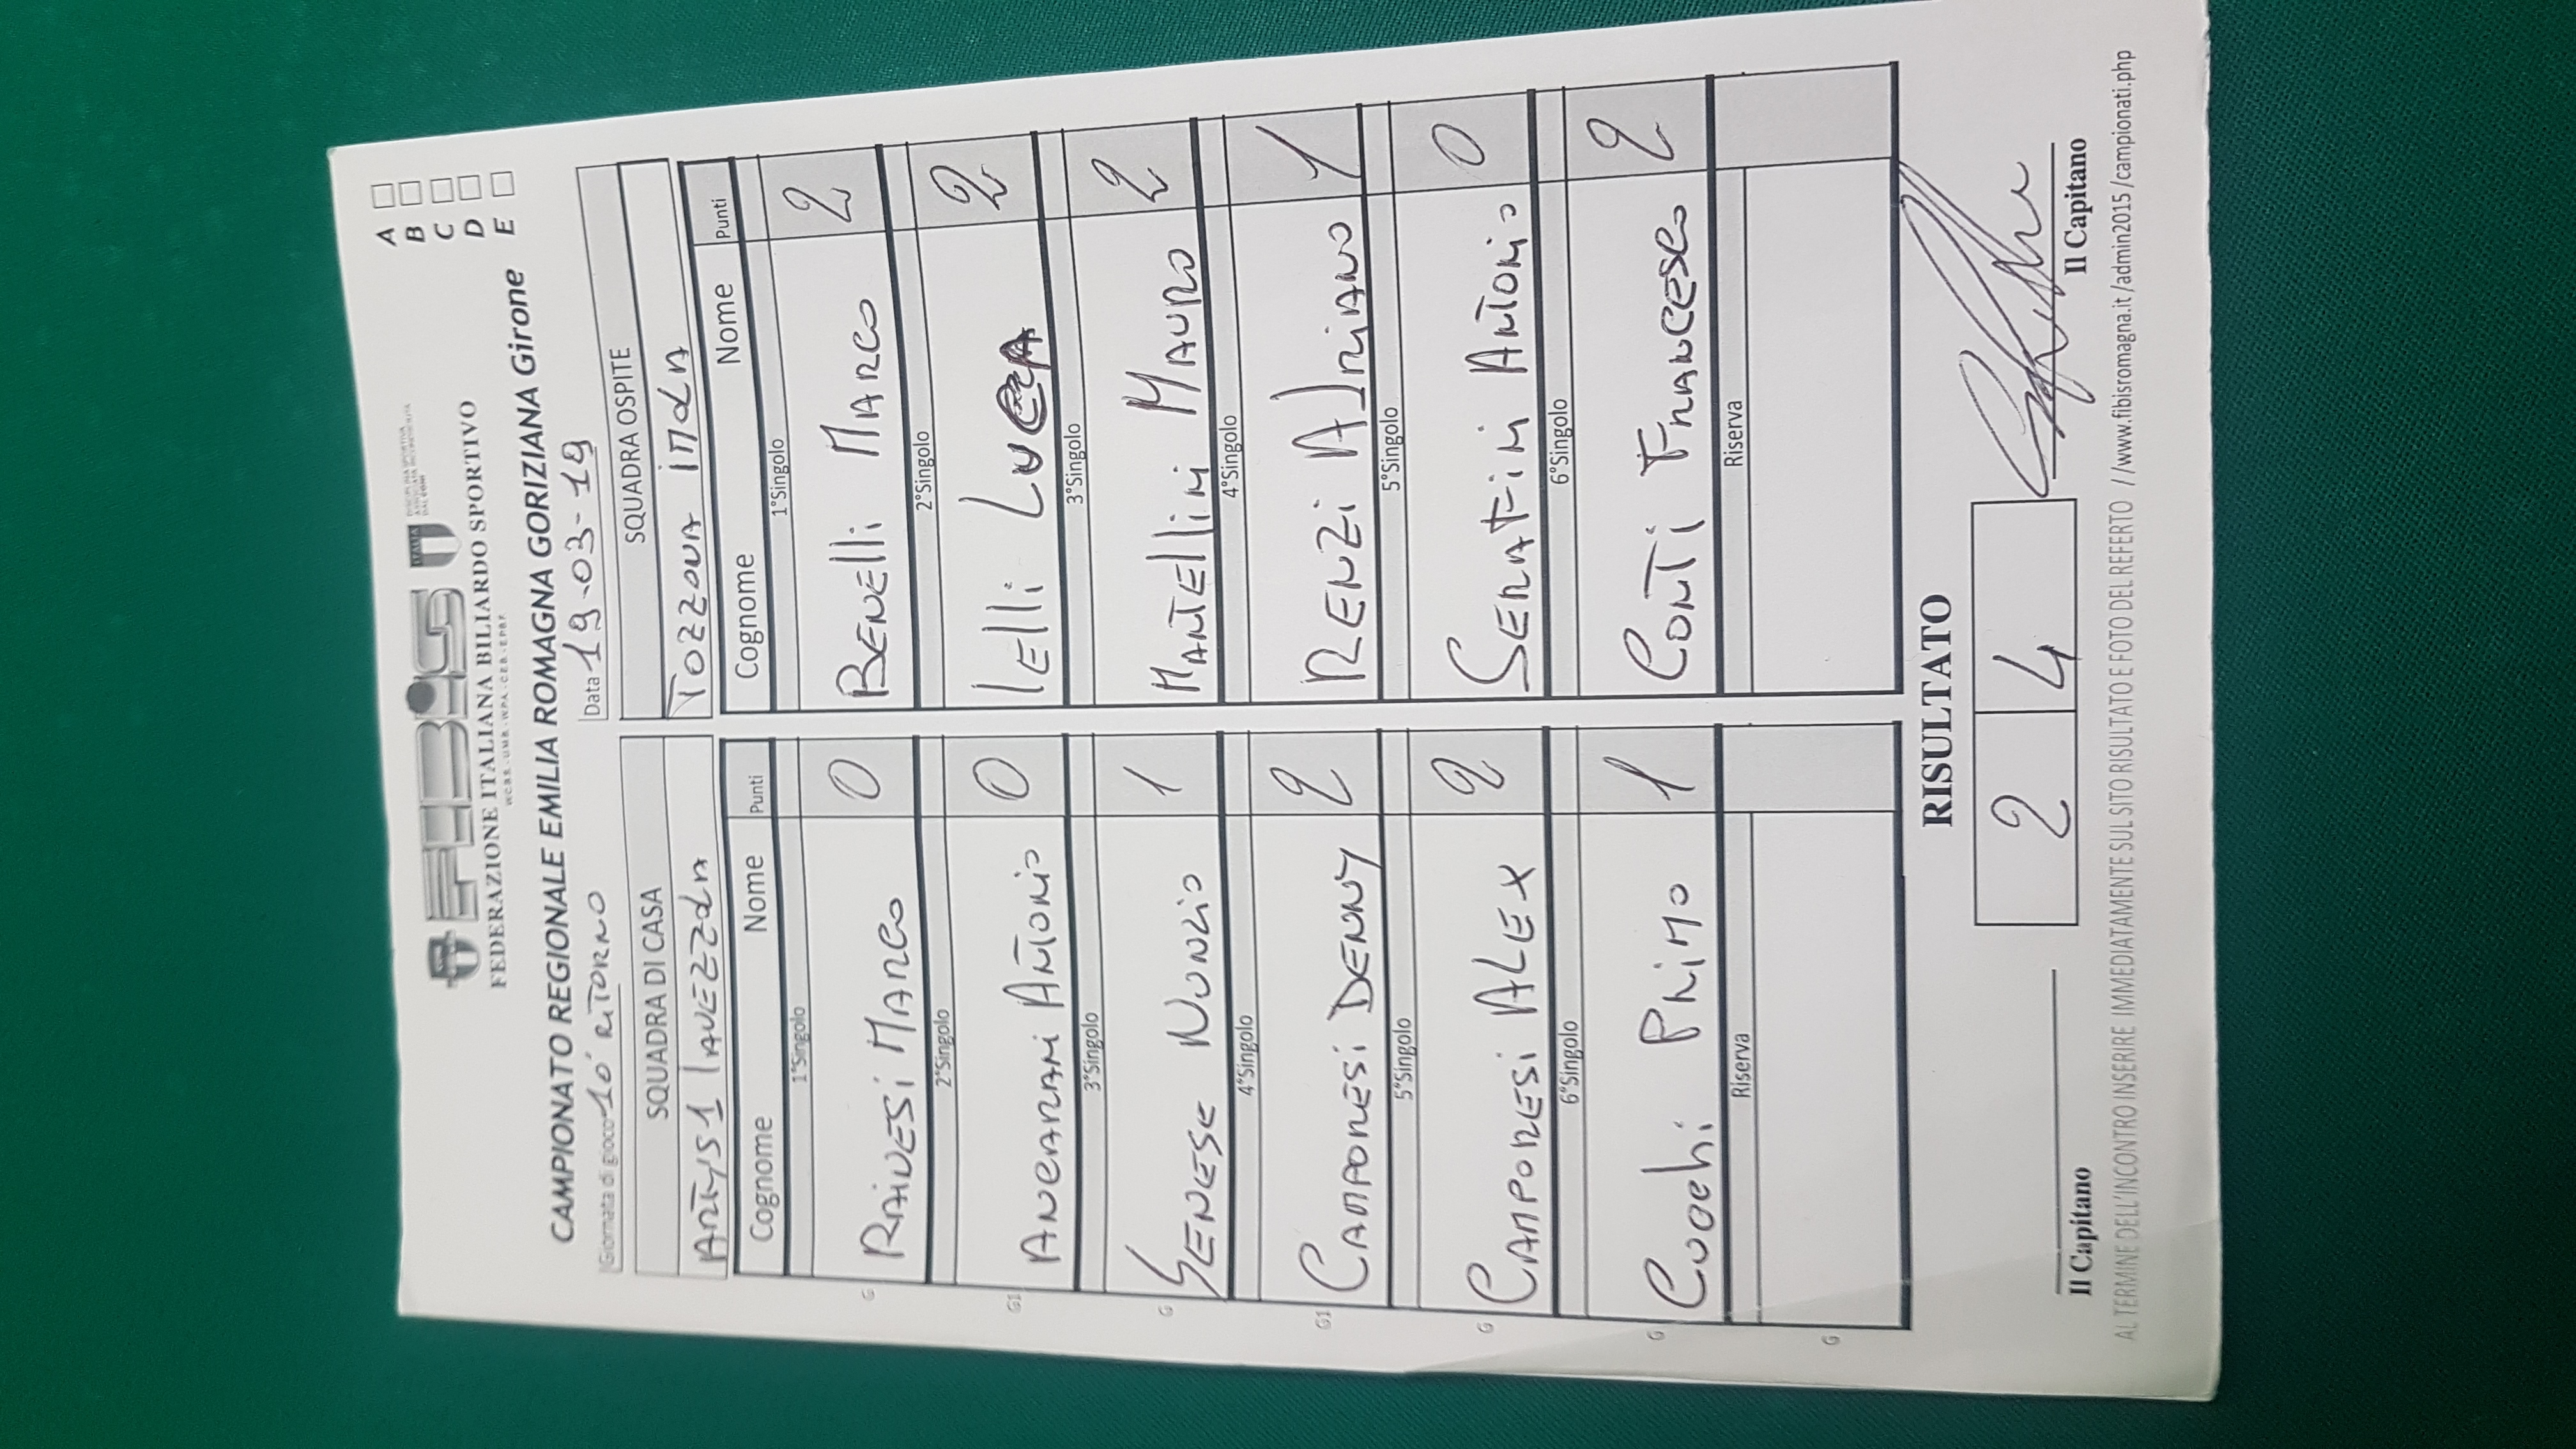 FIBiS
FEDERAZIONE ITALIANA BILIARDO SPORTIVO
A
B
C
D
E
CAMPIONATO REGIONALE EMILIA ROMAGNA GORIZIANA Girone
Giornata di gioco 10° RITORNO Data 19-03-19
SQUADRA DI CASA SQUADRA OSPITE
ARTYS 1 LAVEZZOLA TOZZONA IMOLA
Cognome Nome Punti Cognome Nome Punti
1°Singolo 1°Singolo
G RAIVESI MARCO 0 BENElli MARCO 2
2°Singolo 2°Singolo
G1 ANVERARAMI ANTONIO 0 lElli LUCA 2
3°Singolo 3°Singolo
G SENESE NUNZIO 1 MANTEllini MAURO 2
4°Singolo 4°Singolo
G1 CAMPORESI DENNY 2 RENZI ADRIANO 1
5°Singolo 5°Singolo
G CAMPORESI ALEX 2 SERAFINI ANTONIO 0
6°Singolo 6°Singolo
G CUOCHI PRIMO 1 CONTI FRANCESCO 2
Riserva Riserva
G
RISULTATO
2 4
Il Capitano Il Capitano
AL TERMINE DELL'INCONTRO INSERIRE IMMEDIATAMENTE SUL SITO RISULTATO E FOTO DEL REFERTO //www.fibisromagna.it/admin2015/campionati.php